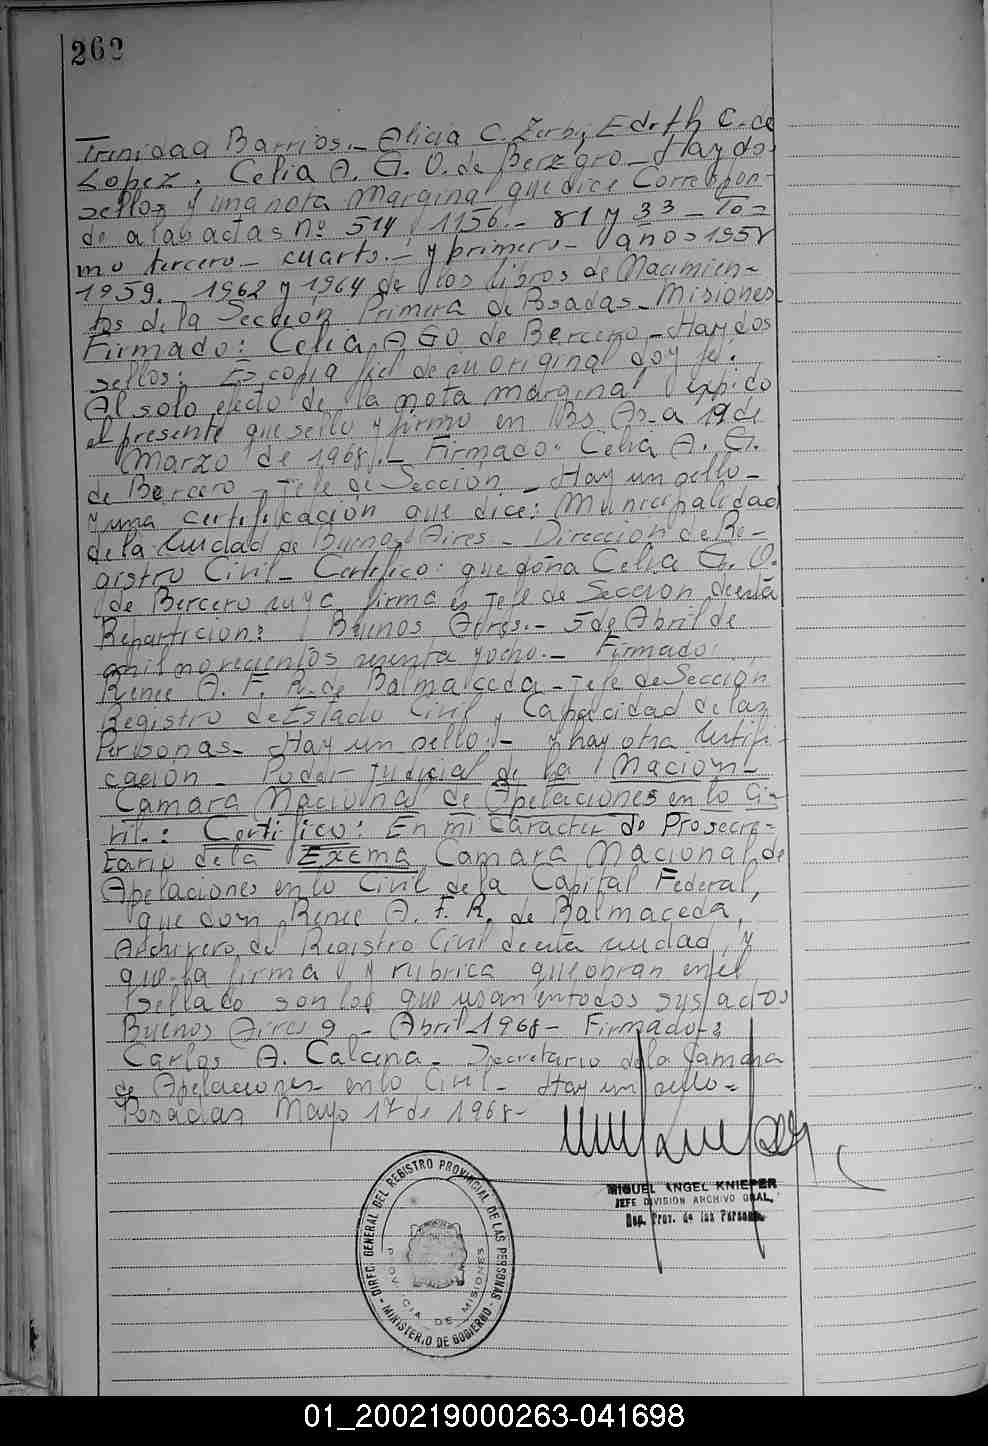 262
Trinidad Barrios.- Alicia C. Zorbi, Edith C. de
Lopez. Celia A. G. O. de Berzero - Hay dos
sellos y una nota marginal que dice Correspon-
de a las actas nº 514, 1156.- 81 y 33 - To-
mo tercero - cuarto.- y primero - años 1958
1959.- 1962 y 1964 de los libros de Nacimien-
tos de la Sección Primera de Posadas - Misiones
Firmado: Celia A G O de Bercero - Hay dos
sellos: Es copia fiel de su original doy fe.
Al solo efecto de la nota marginal expido
el presente que sello y firmo en Bs As a 19 de
Marzo de 1968.- Firmado: Celia A. G.
de Bercero - Jefe de Sección - Hay un sello -
y una certificación que dice: Municipalidad
de la Ciudad de Buenos Aires - Dirección de Re-
gistro Civil - Certifico: que doña Celia G. O.
de Bercero cuya firma es Jefe de Sección de esta
Repartición: Buenos Aires.- 5 de Abril de
mil novecientos sesenta y ocho.- Firmado:
Renee A. F. R. de Balmaceda - Jefe de Sección
Registro de Estado Civil y Capacidad de las
Personas - Hay un sello.- y hay otra Certifi-
cación - Poder Judicial de la Nación -
Camara Nacional de Apelaciones en lo Ci-
vil.: Certifico: En mi caracter de Prosecre-
tario de la Exema Camara Nacional de
Apelaciones en lo Civil de la Capital Federal,
que don Renee A. F. R. de Balmaceda,
Archivero del Registro Civil de esta ciudad, y
que la firma y rubrica que obran en el
sellado son los que usan en todos sus actos
Buenos Aires 9 - Abril - 1968 - Firmado:
Carlos A. Calcena - Secretario de la Camara
de Apelaciones en lo Civil - Hay un sello =
Posadas Mayo 17 de 1968 -
MIGUEL ANGEL KNIEPER
JEFE DIVISION ARCHIVO GRAL.
Reg. Prov. de las Personas
DIREC. GENERAL DEL REGISTRO PROVINCIAL DE LAS PERSONAS
PROVINCIA DE MISIONES
- MINISTERIO DE GOBIERNO -
01_200219000263-041698